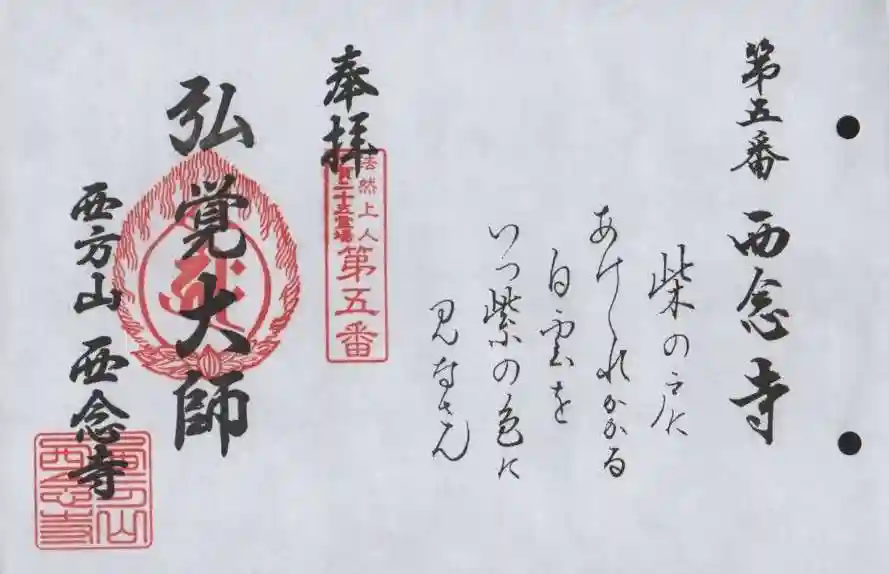 第五番 西念寺
柴の戸に
あけくれかかる
白雲を
いつ紫の色に
見なさん
奉拝
法然上人
二十五霊場
第五番
弘覚大師
西方山 西念寺
西念寺